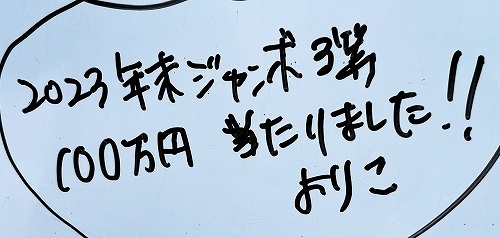 2023年末ジャンボ3等
100万円 当たりました!!
よりこ